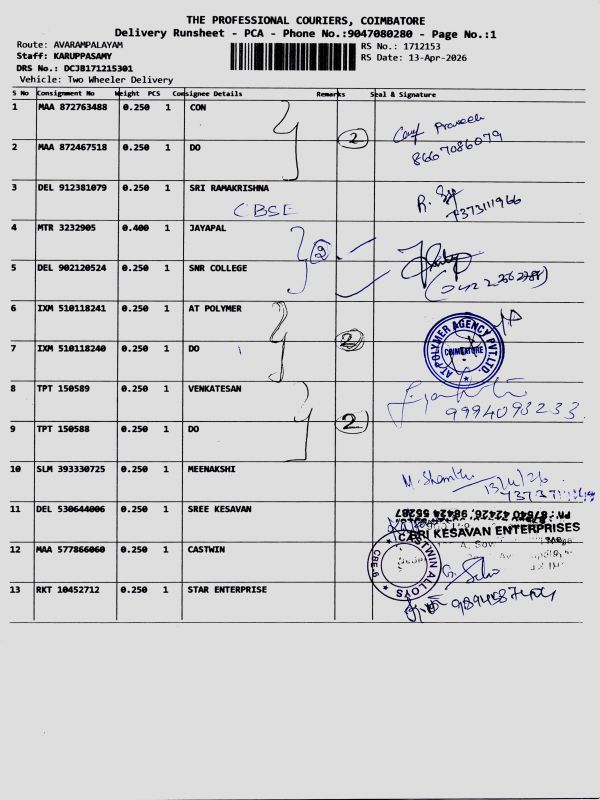 THE PROFESSIONAL COURIERS, COIMBATORE
Delivery Runsheet - PCA - Phone No.:9047080280 - Page No.:1
Route: AVARAMPALAYAM
Staff: KARUPPASAMY
DRS No.: DCJB171215301
Vehicle: Two Wheeler Delivery
RS No.: 1712153
RS Date: 13-Apr-2026
S No Consignment No Weight PCS Consignee Details Remarks Seal & Signature
1 MAA 872763488 0.250 1 CON
2 MAA 872467518 0.250 1 DO
2
Praveen
8667086079
3 DEL 912381079 0.250 1 SRI RAMAKRISHNA
CBSE
7373111966
4 MTR 3232905 0.400 1 JAYAPAL
5 DEL 902120524 0.250 1 SNR COLLEGE
2
6 IXM 510118241 0.250 1 AT POLYMER
7 IXM 510118240 0.250 1 DO
2
AT POLYMER AGENCY PVT.LTD
COIMBATORE
8 TPT 150589 0.250 1 VENKATESAN
9 TPT 150588 0.250 1 DO
2
9994093233
10 SLM 393330725 0.250 1 MEENAKSHI
13/4/26
11 DEL 530644006 0.250 1 SREE KESAVAN
KESAVAN ENTERPRISES
12 MAA 577866060 0.250 1 CASTWIN
CASTWIN ALLOYS
CBE-6
13 RKT 10452712 0.250 1 STAR ENTERPRISE